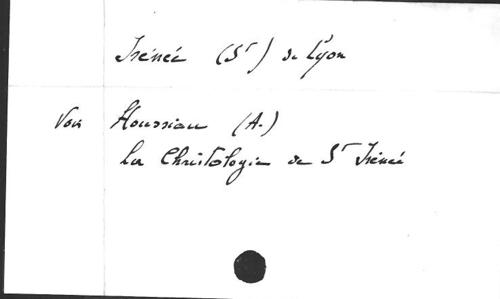 Irénée (St) de Lyon
Voir Houssiau (A.)
la Christologie de St Irénée